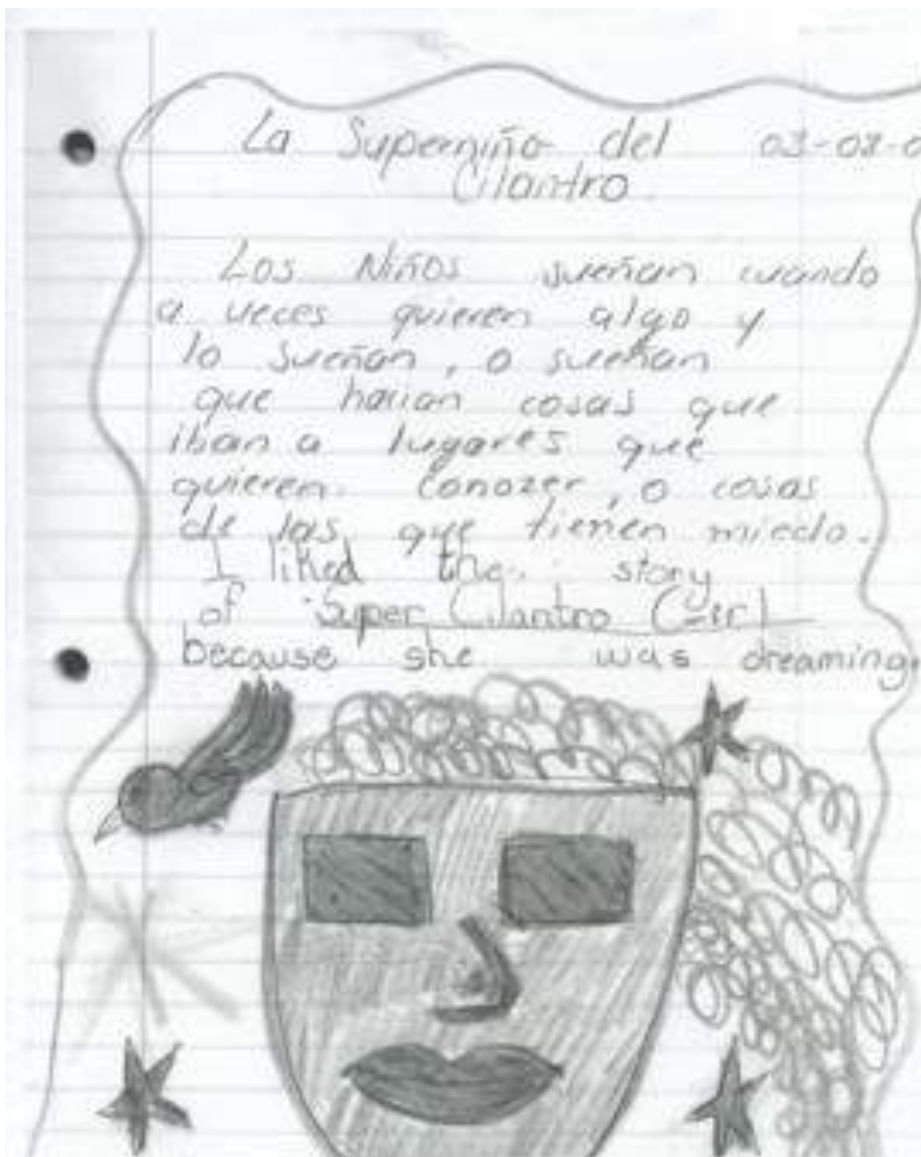 La Superniña del 03-08-0
Cilantro
Los Niños sueñan cuando
a veces quieren algo y
lo sueñan, o sueñan
que hacian cosas que
iban a lugares que
quieren conozer, o cosas
de las que tienen miedo.
I liked the story
of Super Cilantro Girl
because she was dreaming